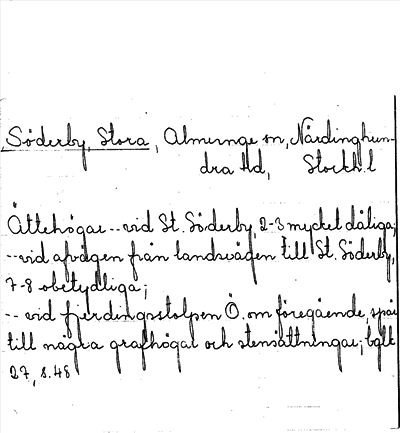 Söderby, Stora, Almunge sn, Närdinghun-
dra Hd, Stockh. l
Ättehögar -- vid St. Söderby, 2-3 mycket dåliga;
-- vid afvägen från landsvägen till St. Söderby,
7-8 obetydliga;
-- vid fjerdingsstolpen Ö. om föregående, spår
till några grafhögar och stensättningar;
27, s. 48